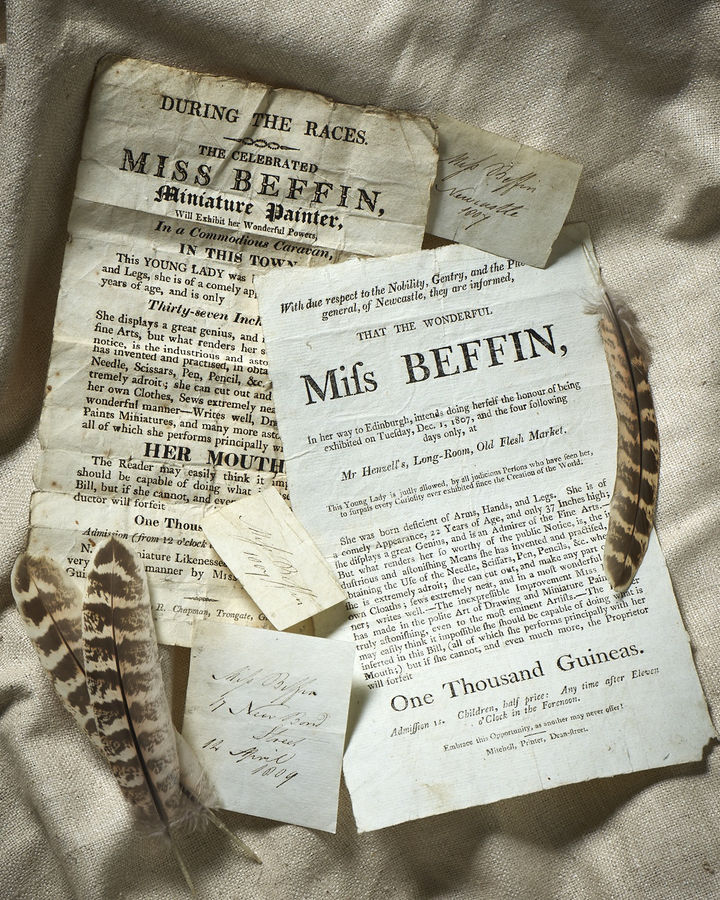 DURING THE RACES.
THE CELEBRATED
MISS BEFFIN,
Miniature Painter,
Will Exhibit her Wonderful Powers,
In a Commodious Caravan,
IN THIS TOWN
This YOUNG LADY was
and Legs, she is of a comely
years of age, and is only
Thirty-seven
She displays a great genius, and
fine Arts, but what renders her
notice, is the industrious and
has invented and practised, in
Needle, Scissars, Pen, Pencil, &c.
tremely adroit; she can cut out and
her own Clothes, Sews extremely
wonderful manner—Writes well,
Paints Miniatures, and many more
all of which she performs principally
HER MOUTH
The Reader may easily think it
should be capable of doing what
Bill, but if she cannot, and
ductor will forfeit
One
Admission (from 12 o'clock
Likenesse
very
manner by Miss
R. Chapman, Trongate,
Miss Beffin
Newcastle
1807
With due respect to the Nobility, Gentry, and the
general, of Newcastle, they are informed,
THAT THE WONDERFUL
Miſs BEFFIN,
In her way to Edinburgh, intends doing herſelf the honour of being
exhibited on Tueſday, Dec. 1, 1807, and the four following
days only, at
Mr Henzell's, Long-Room, Old Fleſh Market.
This Young Lady is juſtly allowed, by all judicious Perſons who have ſeen her,
to ſurpaſs every Curioſity ever exhibited ſince the Creation of the World.
She was born deficient of Arms, Hands, and Legs. She is of
a comely Appearance, 22 Years of Age, and only 37 Inches high;
ſhe diſplays a great Genius, and is an Admirer of the Fine Arts.—
But what renders her ſo worthy of the public Notice, is, the
duſtrious and aſtoniſhing Means ſhe has invented and practiſed,
obtaining the Uſe of the Needle, Sciſſars, Pen, Pencils, &c.
ſhe is extremely adroit; ſhe can cut out, and make any part of
own Cloaths; ſews extremely neat, and in a moſt wonderful
ner; writes well.—The inexpreſſible Improvement Miſs
has made in the polite Art of Drawing and Miniature
truly aſtoniſhing, even to the moſt eminent Artiſts.—The
may eaſily think it impoſſible ſhe ſhould be capable of doing what is
inſerted in this Bill, (all of which ſhe performs principally with her
Mouth;) but if ſhe cannot, and even much more, the Proprietor
will forfeit
One Thousand Guineas.
Admiſſion 1s. Children, half price: Any time after Eleven
o'Clock in the Forenoon.
Embrace this Opportunity, as another may never offer!
Mitchell, Printer, Dean-ſtreet.
Miss Beffin
New Bond
Street
12 April
1809